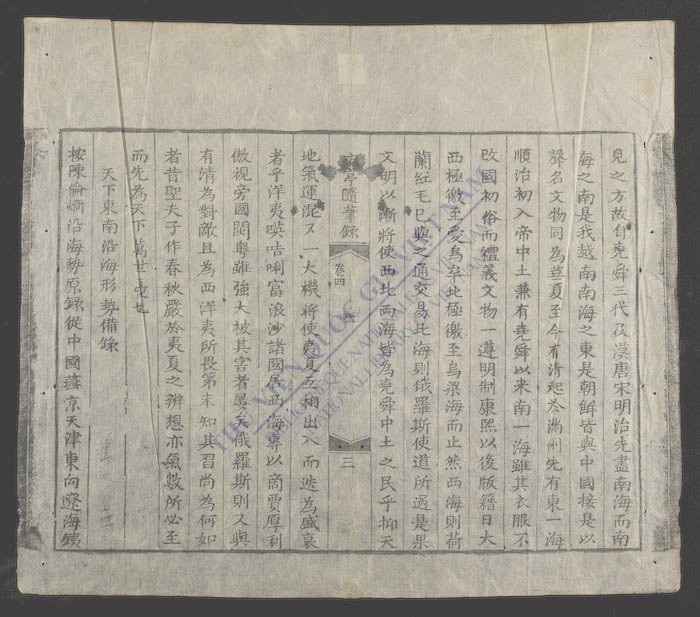 見之方故自堯舜三代及漢唐宋明治先盡南海而南
海之南是我越南南海之東是朝鮮皆與中國接是以
聲名文物同為華夏至今有清起於滿州先有東一海
順治初入帝中土兼有堯舜以來南一海雖其衣服不
改國初俗而禮義文物一遵明制康熙以後版籍日大
西極徼至愛烏罕北極徼至烏梁海而止然西海則荷
蘭紅毛已與之通交易北海則俄羅斯使道所過是果
文明以漸將使西北兩海皆為堯舜中土之民乎抑天
亭隨筆錄
卷四
三
地氣運混又一大機將使夷夏互相出入而迭為盛衰
者乎洋夷唊咭唎富浪沙諸國居西海專以商賈厚利
傲視旁國閩粵雖強大被其害者屢矣俄羅斯則又與
有清為對敵且為西洋夷所畏第未知其習尚為何如
者昔聖夫子作春秋嚴於夷夏之辨想亦氣數所必至
而先為天下萬世憂也
天下東南沿海形勢備錄
按陳倫烱沿海勢原錄從中國盛京天津東向遼海鐵
THƯ VIỆN QUỐC GIA VIỆT NAM
BIBLIOTHEQUE NATIONALE DU VIETNAM
NATIONAL LIBRARY OF VIETNAM